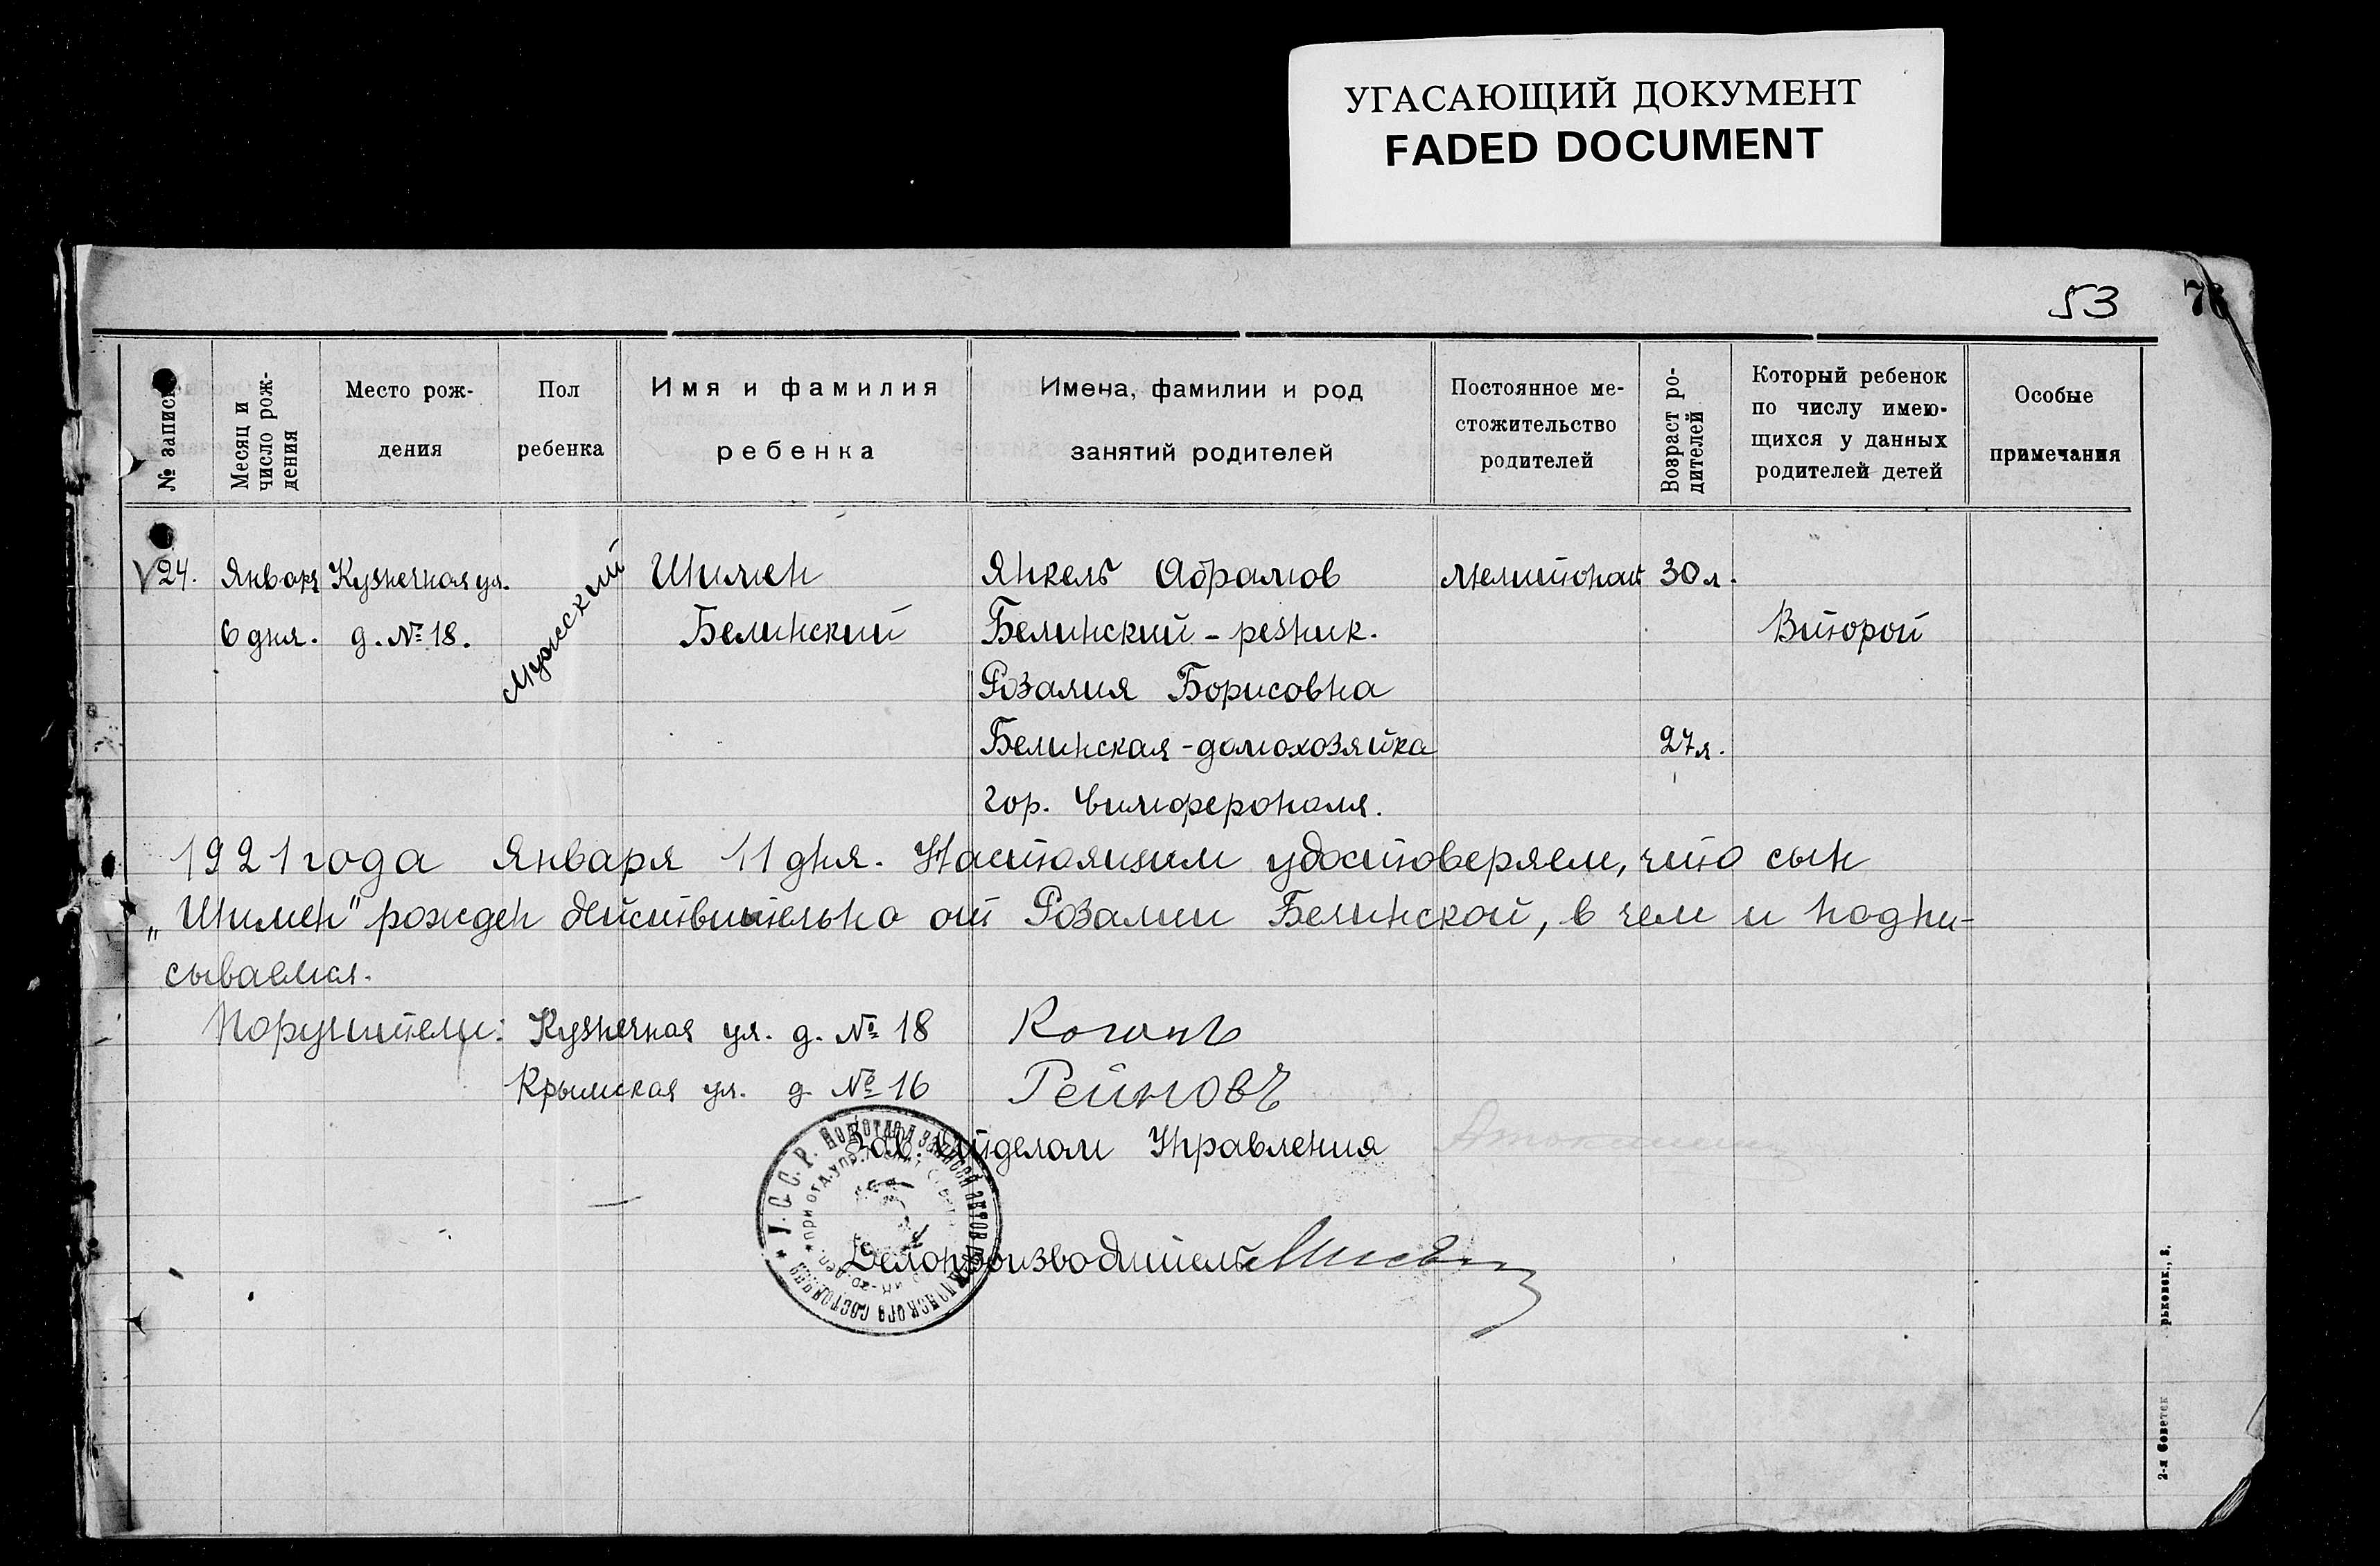 УГАСАЮЩИЙ ДОКУМЕНТ
FADED DOCUMENT
53
76
№ записи
Месяц и число рож-дения
Место рож-дения
Пол ребенка
Имя и фамилия ребенка
Имена, фамилии и род занятий родителей
Постоянное ме-стожительство родителей
Возраст ро-дителей
Который ребенок по числу имею-щихся у данных родителей детей
Особые примечания
24. Января Кузнечная ул. Мужеский Шимен Янкель Абрамов Мелитополь 30 л.
6 дня. д. № 18. Белинский Белинский - резник. Второй
Розалия Борисовна
Белинская - домохозяйка 27 л.
гор. Симферополя.
1921 года Января 11 дня. Настоящим удостоверяем, что сын
„Шимен" рожден действительно от Розалии Белинской, в чем и подпи-
сываемся.
Поручители: Кузнечная ул. д. № 18 Коганъ
Крымская ул. д. № 16 Рейновъ
Зав. Отделом Управления
Делопроизводитель
С.С.Р. Подотдел записей актов гражданского состояния
при отд. упр.
2-я Советск
рьковск., 8.